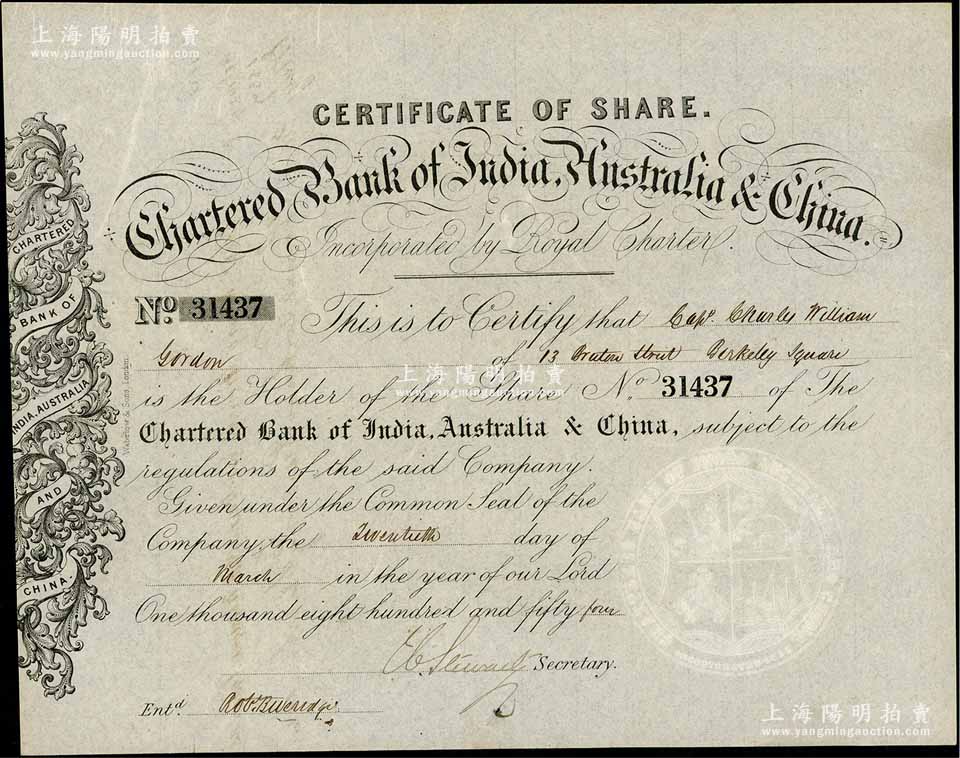 上海陽明拍賣
www.yangmingauction.com
CERTIFICATE OF SHARE.
Chartered Bank of India, Australia & China.
Incorporated by Royal Charter.
No. 31437 This is to Certify that Capt. Charles William
Gordon of 13 Bruton Street Berkeley Square
is the Holder of the Share No. 31437 of The
Chartered Bank of India, Australia & China, subject to the
regulations of the said Company.
Given under the Common Seal of the
Company, the Twentieth day of
March in the year of our Lord
One thousand eight hundred and fifty four
Stewart Secretary.
Entd. Robt. Beveridge
CHARTERED
BANK OF
INDIA, AUSTRALIA
AND
CHINA.
Waterlow & Sons London
上海陽明拍賣
www.yangmingauction.com
上海陽明拍賣
www.yangmingauction.com